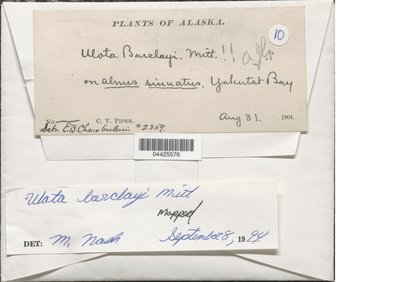 PLANTS OF ALASKA.
10
Ulota Barclayi, Mitt.!!
on alnus sinuatus, Yakutat Bay
Aug 31. 1904.
No. C. V. PIPER.
Detr. E.B. Chamberlain #2359.
04425576
Ulota barclayi Mitt
Mapped
DET: M. Nash September 8, 1984